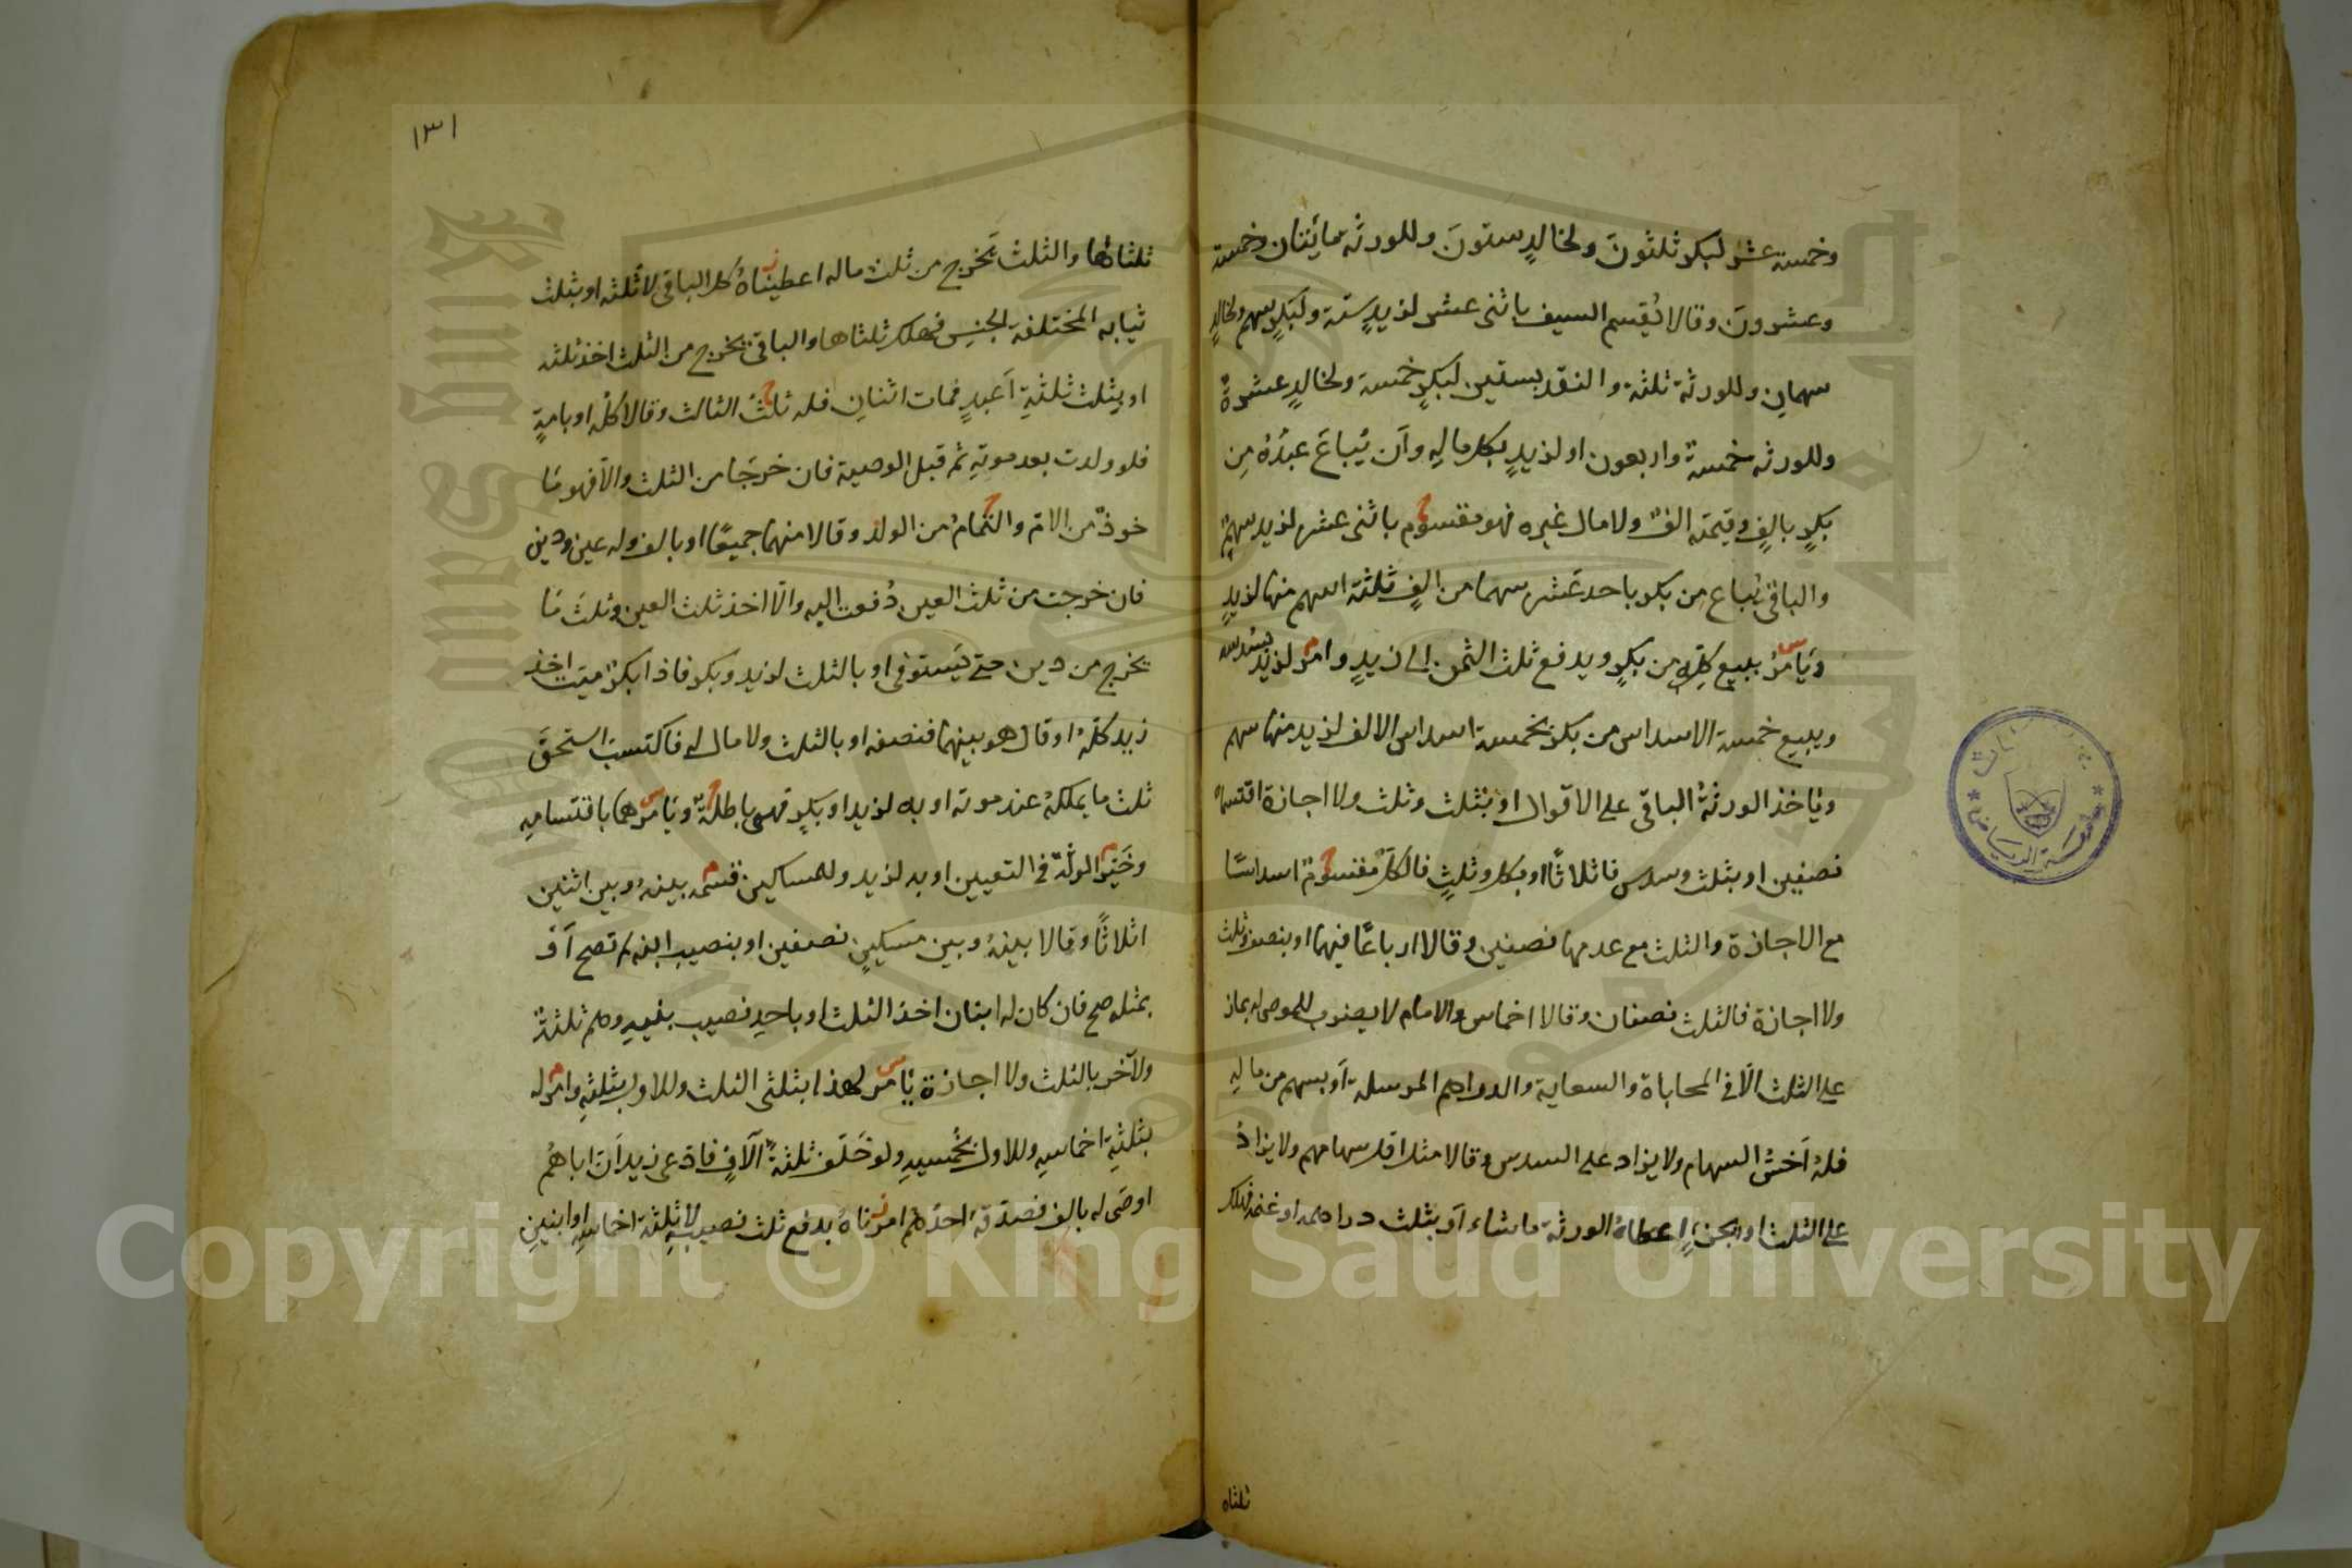 وخمسة عشر لبكر ثلثون ولخالد ستون وللورثة مائتان وخمسة
وعشرون وقالا نقسم السيف باثنى عشر لزيد ستة ولبكر سهم ولخالد
سهمان وللورثة ثلثة والنقد بستين لبكر خمسة ولخالد عشرة
وللورثة خمسة واربعون او لزيد بكل ماله وان يباع عبده من
بكر بالف وقيمته الف ولا مال غيره فهو مقسوم باثنى عشر لزيد سهم
والباقى يباع من بكر باحد عشر سهما من الف ثلثة اسهم منها لزيد
ويامر ببيع كله من بكر ويدفع ثلث الثمن الى زيد وامر لزيد بسدسه
ويبيع خمسة الاسداس من بكر بخمسة اسداس الالف لزيد منها سهم
وياخذ الورثة الباقى على الاقوال او بثلث وثلث ولا اجازة اقتسماه
نصفين او بثلث وسدس فاثلاثا او بكل وثلث فالكل مقسوم اسداسا
مع الاجازة والثلث مع عدمها نصفين وقالا ارباعا فيهما او بنصف وثلث
ولا اجازة فالثلث نصفان وقالا اخماس والامام لا يضرب للموصى له بمازاد
على الثلث الا فى المحاباة والسعاية والدراهم المرسلة او بسهم من ماله
فله اخس السهام ولا يزاد على السدس وقالا مثل اقل سهامهم ولا يزاد
على الثلث او بجزء اعطاه الورثة ما شاء او بثلث دراهمه او غنمه فهلك
ثلثاه
١٣١
ثلثاها والثلث يخرج من ثلث ماله اعطيناه كل الباقى لا ثلثه او بثلث
ثيابه المختلفة الجنس فهلك ثلثاها والباقى يخرج من الثلث اخذ ثلثه
او بثلث ثلثة اعبد فمات اثنان فله ثلث الثالث وقالا كله او بامة
فلو ولدت بعد موته ثم قبل الوصية فان خرجا من الثلث والا فهو ما
خوذ من الام والتمام من الولد وقالا منهما جميعا او بالف وله عين ودين
فان خرجت من ثلث العين دفعت اليه والا اخذ ثلث العين وثلث ما
يخرج من دين حتى يستوفى او بالثلث لزيد وبكر فاذا بكر ميت اخذ
زيد كله او قال هو بينهما فنصفه او بالثلث ولا مال له فاكتسب استحق
ثلث ما يملكه عند موته او به لزيد او بكر فهى باطلة ويامرهما باقتسامه
وخير الورثة فى التعيين او به لزيد وللمساكين قسمه بينه وبين اثنين
اثلاثا وقالا بينه وبين مسكين نصفين او بنصيب ابنه لم تصح او
بمثله صح فان كان له ابنان اخذ الثلث او باحد نصيب بنيه وهم ثلثة
ولآخر بالثلث ولا اجازة يامر لهذا بثلثى الثلث وللاول بثلثه وامر له
بثلثة اخماسه وللاول بخمسيه ولو خلف ثلثة آلاف فادعى زيد ان اباهم
اوصى له بالف فصدقه احدهم امرناه بدفع ثلث نصيبه لا ثلثة اخماسه او ابنين